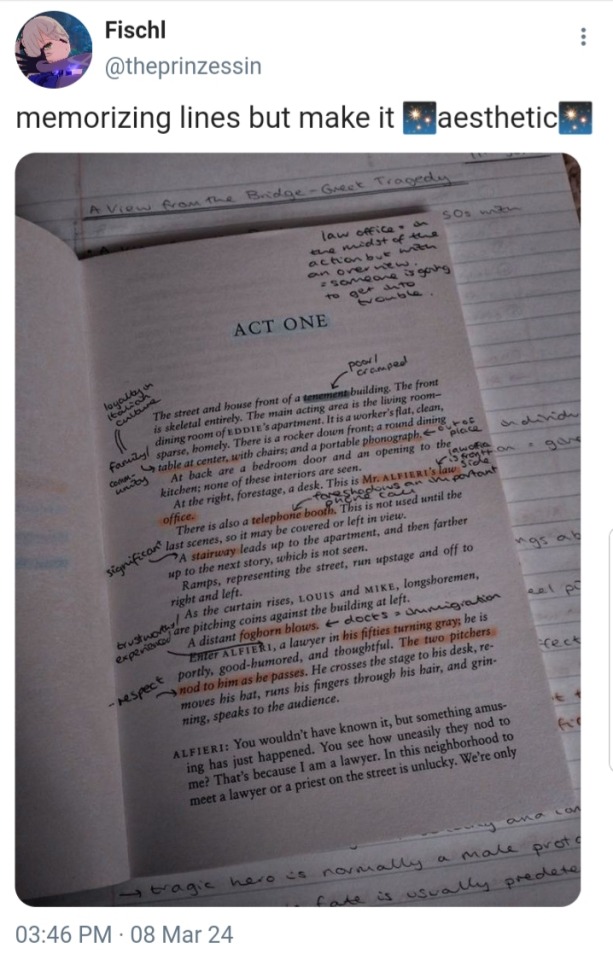 Fischl
@theprinzessin
memorizing lines but make it 🎇aesthetic🎇
A View from the Bridge - Greek Tragedy
50s
law office = in
the midst of the
action but with
an overview.
= someone is going
to get into
trouble.
ACT ONE
poor/
cramped
loyalty in
Italian
culture
family/
The street and house front of a tenement building. The front
is skeletal entirely. The main acting area is the living room–
dining room of EDDIE's apartment. It is a worker's flat, clean,
sparse, homely. There is a rocker down front; a round dining
table at center, with chairs; and a portable phonograph. ← out of
place
At back are a bedroom door and an opening to the
kitchen; none of these interiors are seen.
At the right, forestage, a desk. This is Mr. ALFIERI's law
office.
foreshadows an important
phone call
There is also a telephone booth. This is not used until the
last scenes, so it may be covered or left in view.
significant
A stairway leads up to the apartment, and then farther
up to the next story, which is not seen.
Ramps, representing the street, run upstage and off to
right and left.
As the curtain rises, LOUIS and MIKE, longshoremen,
are pitching coins against the building at left.
trustworthy/
experienced
A distant foghorn blows. ← docks = immigration
Enter ALFIERI, a lawyer in his fifties turning gray; he is
portly, good-humored, and thoughtful. The two pitchers
- respect
nod to him as he passes. He crosses the stage to his desk, re-
moves his hat, runs his fingers through his hair, and grin-
ning, speaks to the audience.
ALFIERI: You wouldn't have known it, but something amus-
ing has just happened. You see how uneasily they nod to
me? That's because I am a lawyer. In this neighborhood to
meet a lawyer or a priest on the street is unlucky. We're only
→ tragic hero is normally a male
fate is usually
03:46 PM · 08 Mar 24